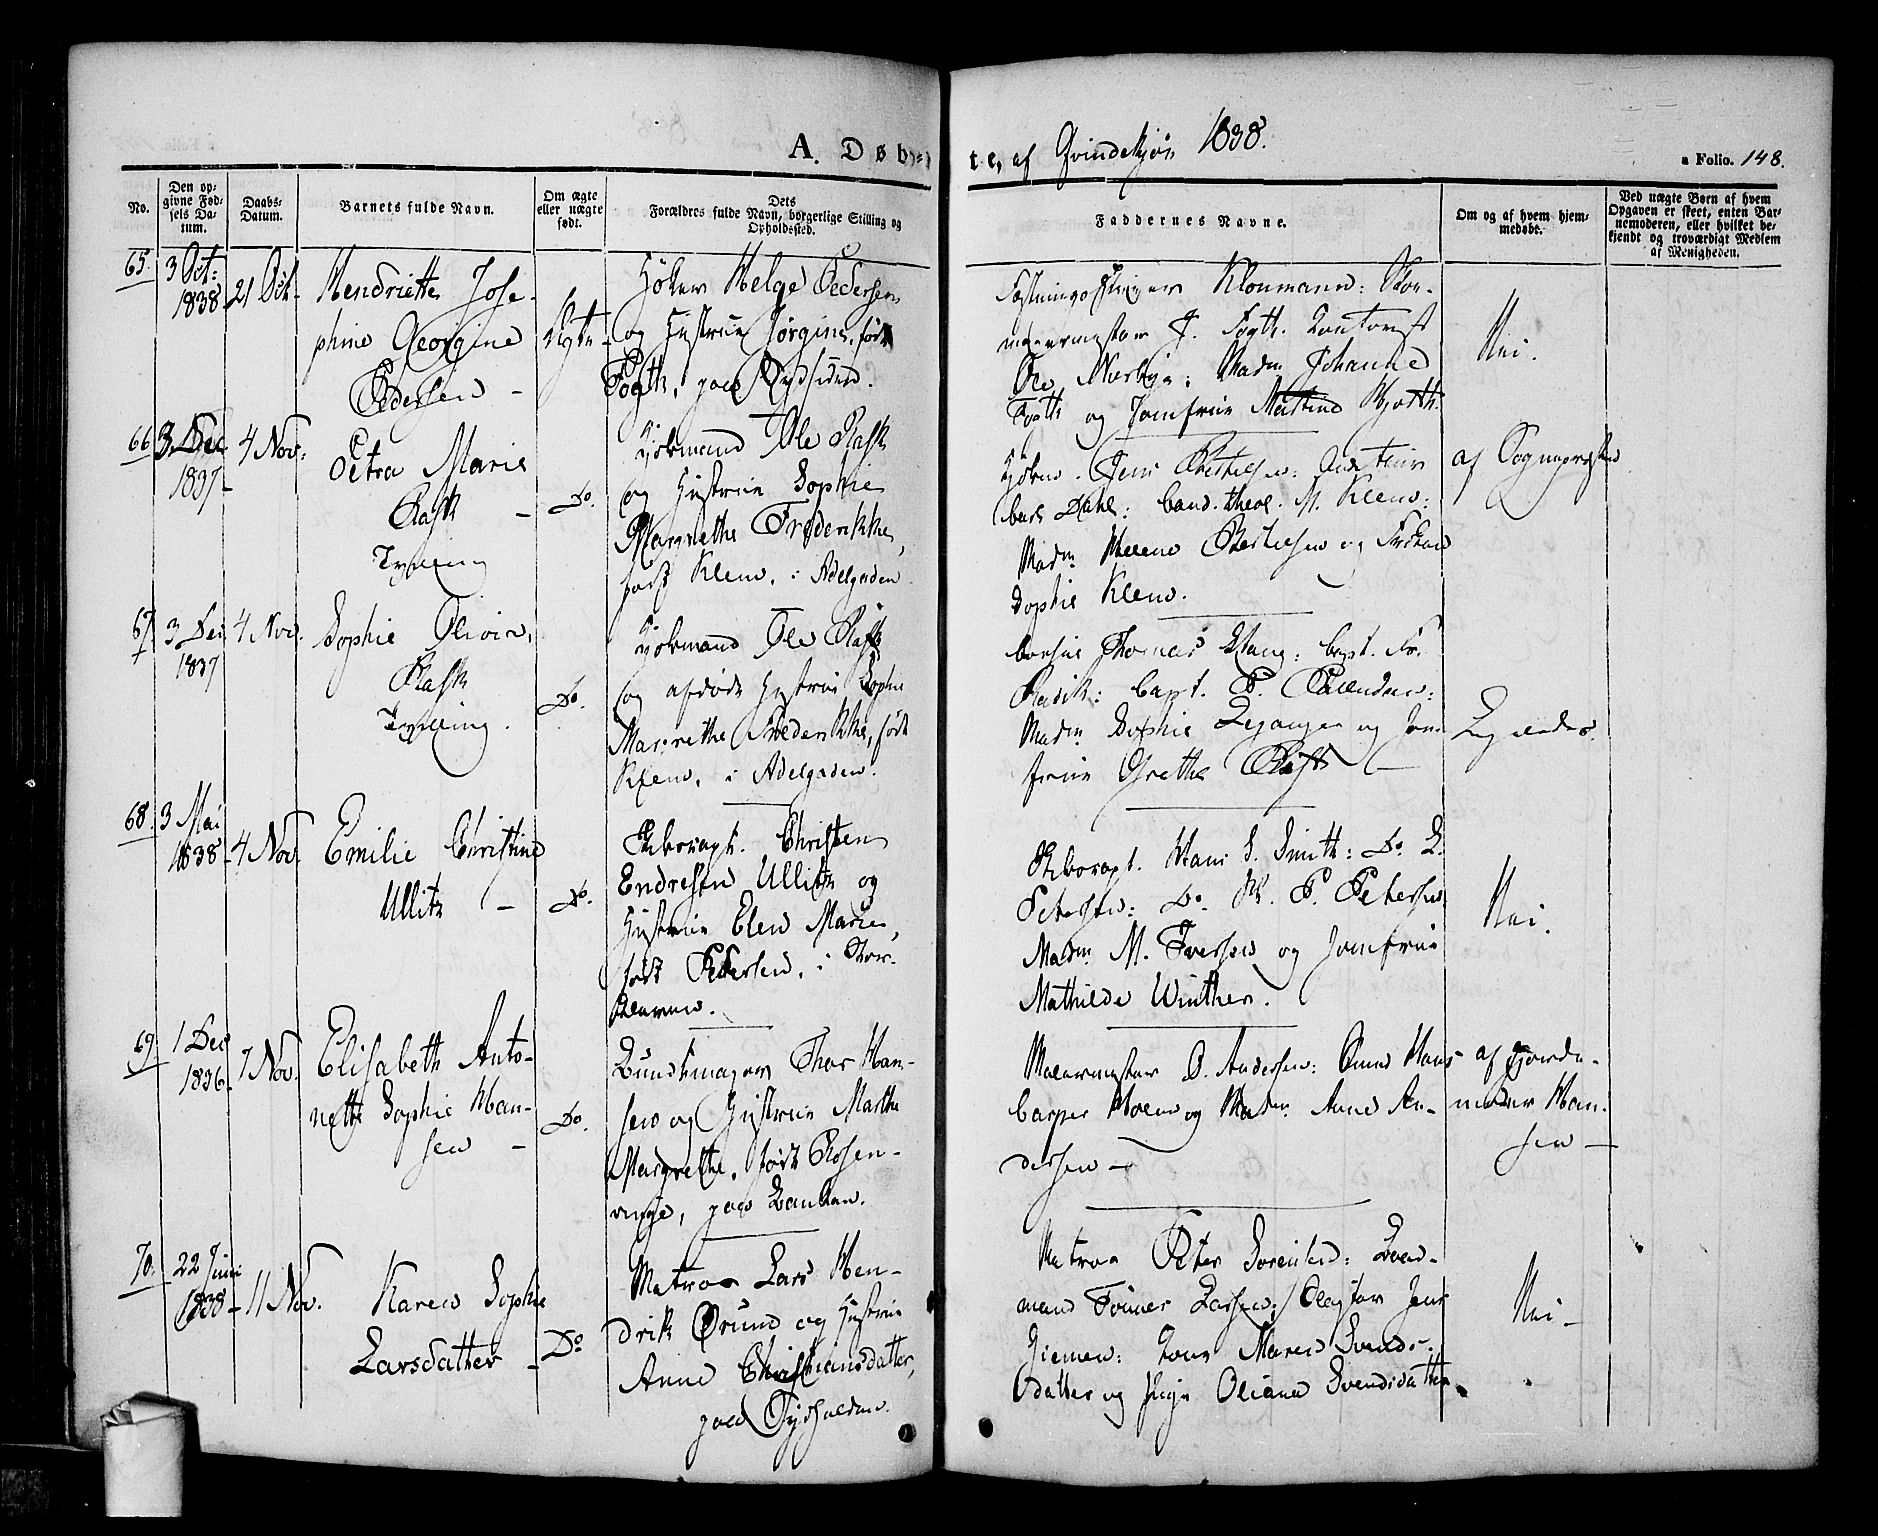 A. Døbte, af Qvindekjøn 1838.
a Folio. 148.
No.
Den op-
givne Fød-
sels Da-
tum.
Daabs-
Datum.
Barnets fulde Navn.
Om ægte
eller uægte
født.
Dets
Forældres fulde Navn, borgerlige Stilling og
Opholdssted.
Faddernes Navne.
Om og af hvem hjem-
medøbt.
Ved uægte Børn af hvem
Opgaven er skeet, enten Bar-
nemoderen, eller hvilket be-
kjendt og troværdigt Medlem
af Menigheden.
65.
3 Oct:
1838
21 Oct.
Hendriette Jose-
phine Georgine
Pedersen
Ægte
Helge Pedersen
og Hustrue Jørgine, født
Fogth, paa
Kloumann:
J. Fogth.
Madm Johanne
Fogth og Jomfrue
Nei.
66
3 Dec
1837
4 Nov:
Petra Marie
Rask
Tvilling
Do.
Ole Rask
og Hustrue Sophie
Margrethe Frederikke,
født Klem, i Adelgaden
Jens Bertelsen:
Carl Dahl: Cand. theol. M. Klem:
Madm Helene Bertelsen og Frøken
Sophie Klem.
af Sognepræsten
67
3 Dec
1837
4 Nov.
Sophie Olivia,
Rask
Tvilling.
Do.
Ole Rask
og afdøde Hustrue Sophie
Margrethe Frederikke, født
Klem, i Adelgaden.
Thomas Stang: Capt. Fr.
Capt. P.
Madm Sophie og Jom
frue Grethe
Ligeledes.
68.
3 Mai
1838
4 Nov.
Emilie Christine
Ullitz
Do.
Christen
Endresen Ullitz og
Hustrue Elen Marie,
født Pedersen, i
Hans S. Smith: Do. L.
Petersen: Do. P. Petersen
Madm. M. Iversen og Jomfrue
Mathilde Winther.
Nei.
69
1 Dec
1836
7 Nov.
Elisabeth Anto-
nette Sophie Han-
sen
Do.
Bundtmager Thor Han-
sen og Hustrue Marthe
Margrethe, født Rosen-
vinge, paa Banken.
Malermester Andersen: Hans
Casper Holm og Madm. Anne An-
dersen
af Jorde-
moder Han-
sen
70.
22 Juni
1838
11 Nov.
Karen Sophie
Larsdatter
Do
Matros Lars Hen-
drik Ørund og Hustrue
Anne Christiansdatter,
paa
Matros Peter Sørensen:
mand Larsen: Jens
Maren Svends-
datter og Pige Oliana Svendsdatter
Nei